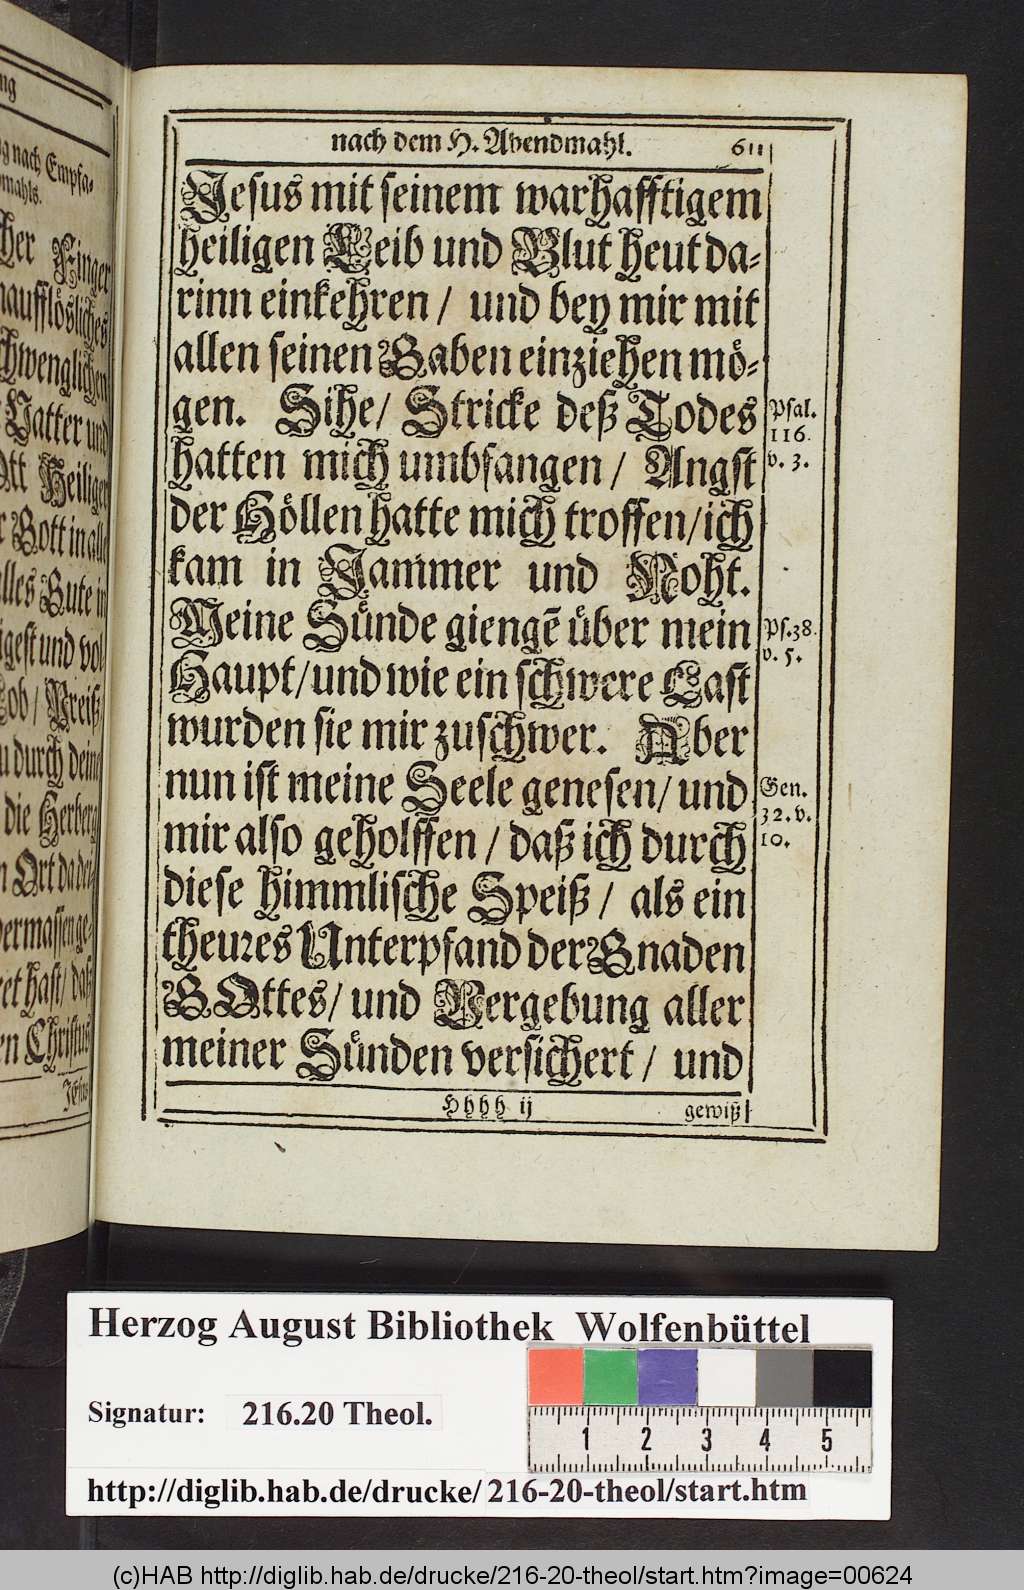 ng
g nach Empfa-
dmahls.
her Finger
naufflösliches
chwenglichen
Vatter und
Ott Heiliger
r Gott in alle
lles Gute in
igest und vol-
Lob / Preiß /
u durch deine
die Herberg
n Ort da dei-
dermassen ge-
ret hast / daß
en Christus
JEsus
nach dem H. Abendmahl. 611
Jesus mit seinem warhafftigem
heiligen Leib und Blut heut da-
rinn einkehren / und bey mir mit
allen seinen Gaben einziehen mö-
gen. Sihe / Stricke deß Todes
hatten mich umbfangen / Angst
der Höllen hatte mich troffen / ich
kam in Jammer und Noht.
Meine Sünde giengē über mein
Haupt / und wie ein schwere Last
wurden sie mir zuschwer. Aber
nun ist meine Seele genesen / und
mir also geholffen / daß ich durch
diese himmlische Speiß / als ein
theures Unterpfand der Gnaden
GOttes / und Vergebung aller
meiner Sünden versichert / und
Hhhh ij gewiß
Psal.
116.
v. 3.
Ps. 38.
v. 5.
Gen.
32. v.
10.
Herzog August Bibliothek Wolfenbüttel
Signatur: 216.20 Theol.
1 2 3 4 5
http://diglib.hab.de/drucke/216-20-theol/start.htm
(c)HAB http://diglib.hab.de/drucke/216-20-theol/start.htm?image=00624